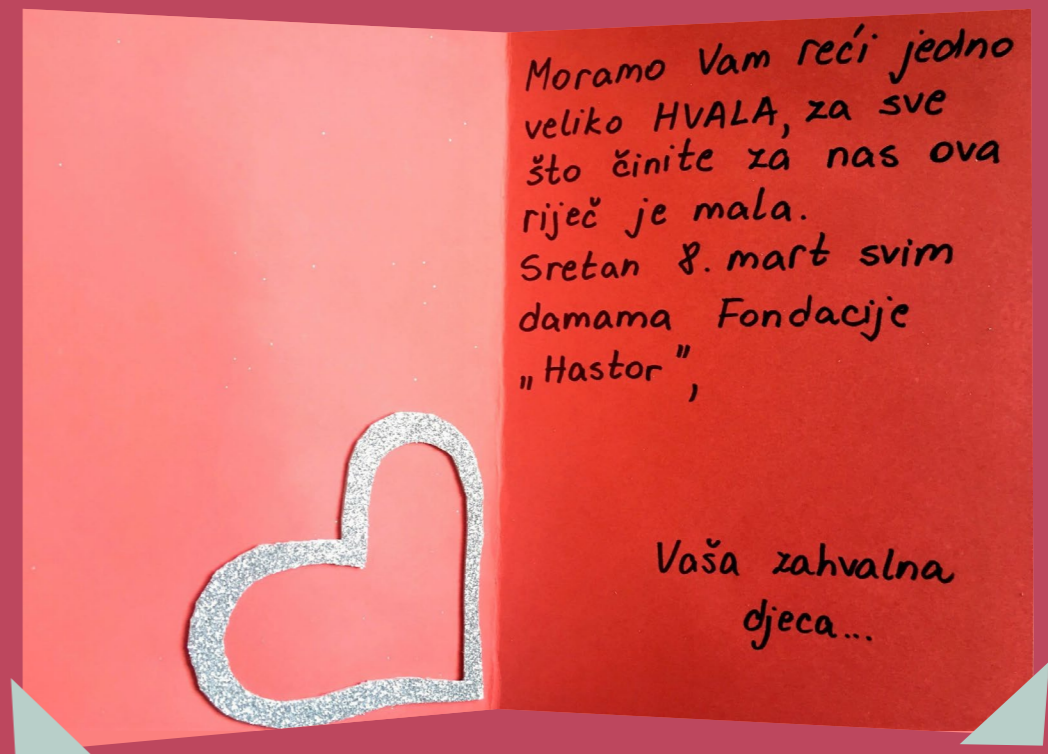 Moramo Vam reći jedno
veliko HVALA, za sve
što činite za nas ova
riječ je mala.
Sretan 8. mart svim
damama Fondacije
„Hastor”,
Vaša zahvalna
djeca...